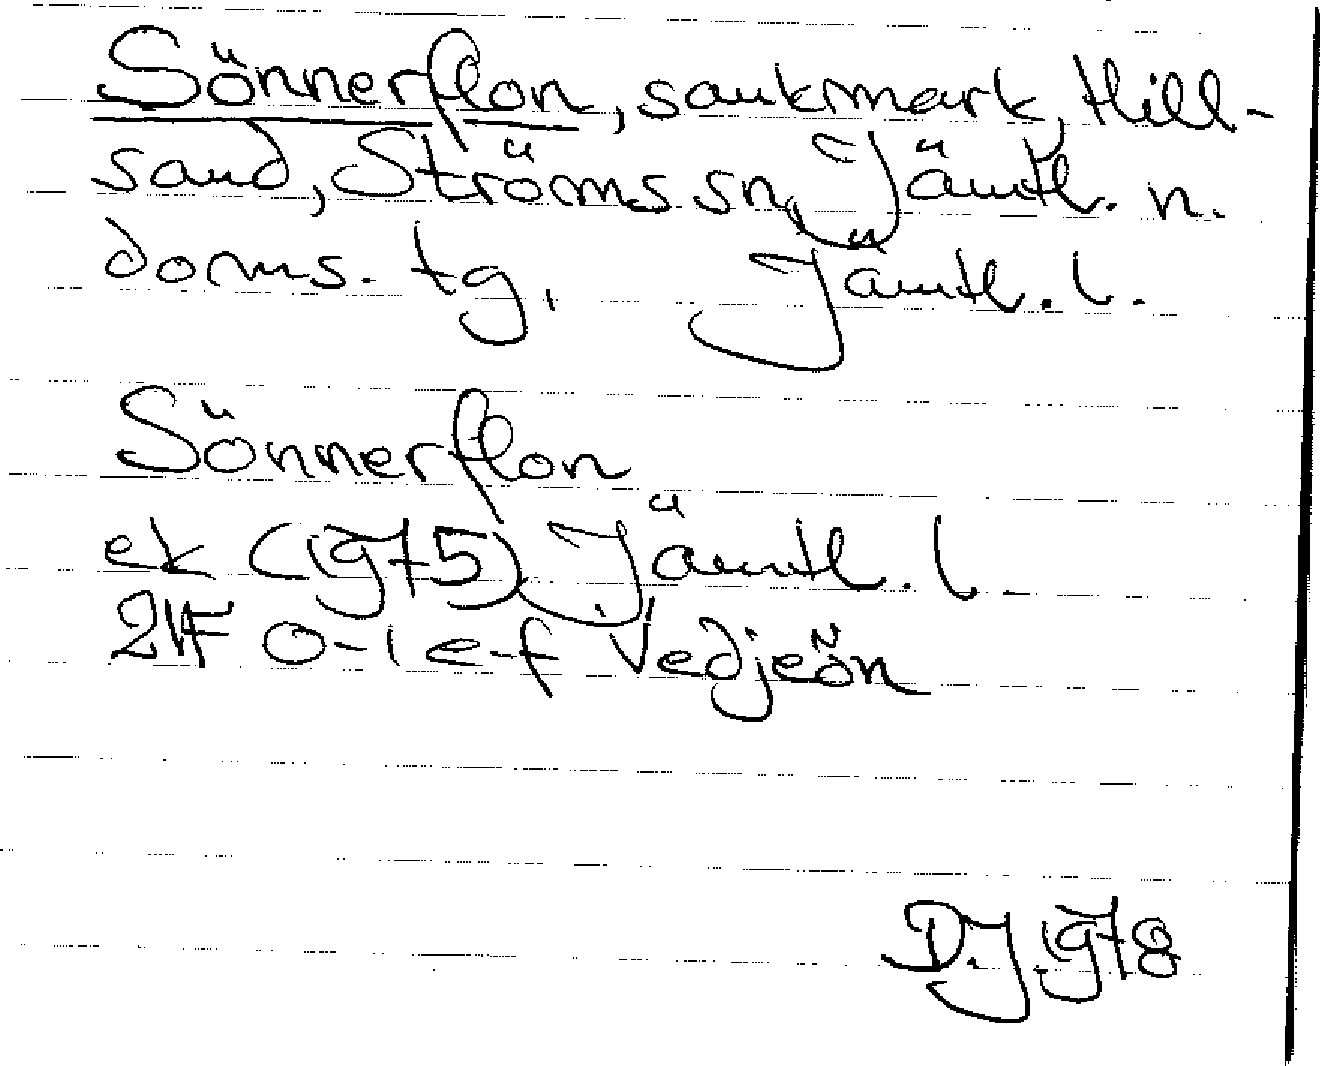 Sönnerflon, sankmark, Hill-
sand, Ströms sn, Jämtl. n.
doms. tg, Jämtl. l.
Sönnerflon
ek (1975) Jämtl. l.
21F 0-1 e-f Vedjeön
D.J. 1978